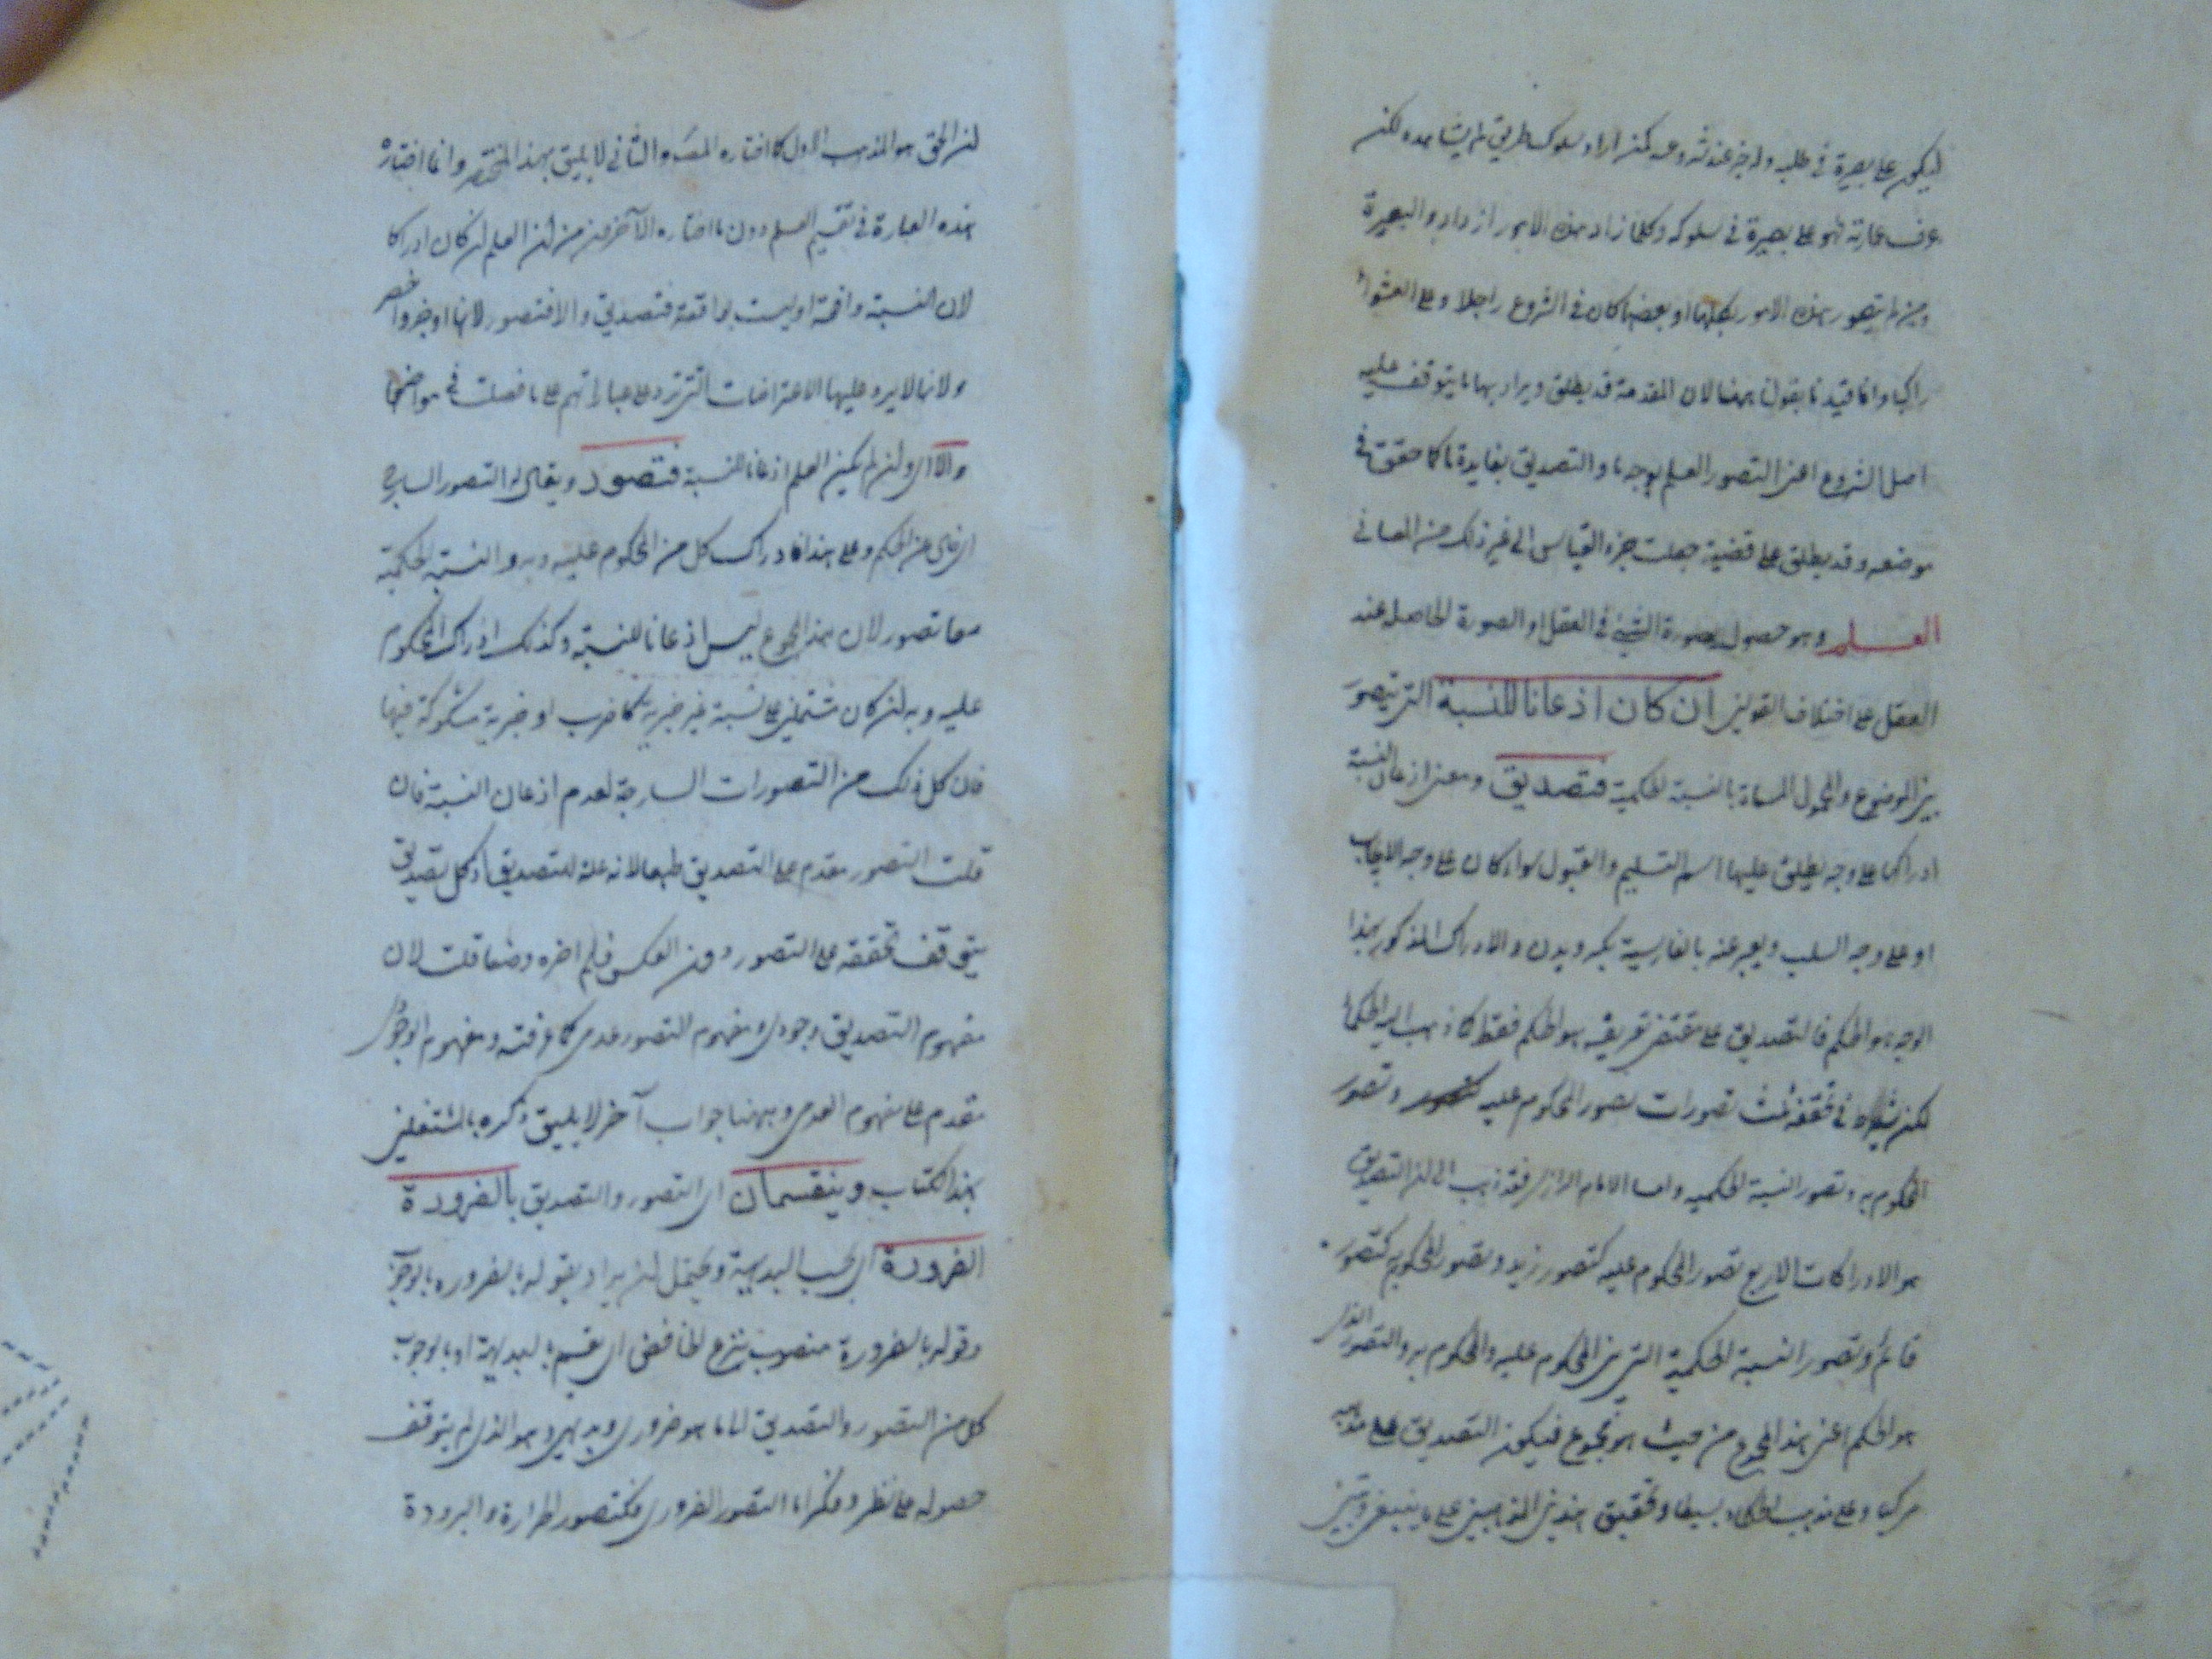 ليكون على بصيرة في طلبه ولم يخبر عند شروعه كمن اراد سلوك طريق لم يشاهده لكن
عرف امارته فهو على بصيرة في سلوكه وكلما زاد هذه الامور ازداد والبصيرة
ومن لم يتصور هذه الامور بكلها او بعضها كان في الشروع راجلا وعلى العشواء
راكبا وانما قيدنا بقولنا ههنا لان المقدمة قد يطلق ويراد بها ما يتوقف عليه
اصل الشروع اعنى التصور العلم بوجه ما والتصديق بفايدة ما كما حقق في
موضعه وقد يطلق على قضية جعلت جزء القياس الى غير ذلك من المعانى
العلم وهو حصول صورة الشيئ في العقل او الصورة الحاصلة عند
العقل على اختلاف القولين ان كان اذعانا للنسبة التى يتصور
بين الموضوع والمحمول المسماة بالنسبة الحكمية فتصديق ومعنى اذعان النسبة
ادراكها على وجه يطلق عليها اسم التسليم والقبول سواء كان على وجه الايجاب
او على وجه السلب ويعبر عنه بالفارسية بكرويدن والادراك المذكور بهذا
الوجه هو الحكم فالتصديق على مقتضى تعريفه هو الحكم فقط كما ذهب اليه الحكماء
لكن يشترط في تحققه ثلث تصورات تصور المحكوم عليه وتصور
المحكوم به وتصور النسبة الحكمية واما الامام الرازى فقد ذهب الى ان التصديق
هو الادراكات الاربع تصور المحكوم عليه كتصور زيد وتصور المحكوم به كتصور
قائم وتصور النسبة الحكمية التى بين المحكوم عليه والمحكوم به والتصور الذى
هو الحكم اعنى هذا المجموع من حيث هو مجموع فيكون التصديق على مذهبه
مركبا وعلى مذهب الحكماء بسيطا وتحقيق هذين المذهبين على ما ينبغى وتبيين
ان الحق هو المذهب الاول كما اختاره المص والثانى لا يليق بهذا المختصر وانما اختار
هذه العبارة في تقسيم العلم دون ما اختاره الآخرون من ان العلم ان كان ادراكا
لان النسبة واقعة او ليست بواقعة فتصديق والا فتصور لانها اوجز واخصر
ولانها لا يرد عليها الاعتراضات التى ترد على عباراتهم على ما فصلت في مواضعها
والا اى وان لم يكن العلم اذعانا للنسبة فتصور ويقال له التصور الساذج
اى الخالى عن الحكم وعلى هذا فادراك كل من المحكوم عليه وبه والنسبة الحكمية
معا تصور لان هذا المجموع ليس اذعانا للنسبة وكذلك ادراك المحكوم
عليه وبه ان كان مشتملين على نسبة غير خبرية كاضرب او خبرية مشكوكة فيها
فان كل ذلك من التصورات الساذجة لعدم اذعان النسبة فان
قلت التصور مقدم على التصديق طبعا لانه علة للتصديق اذ كل تصديق
يتوقف تحققه على التصور دون العكس فلم اخره وضعا قلت لان
مفهوم التصديق وجودى ومفهوم التصور عدمى كما عرفته ومفهوم الوجودى
مقدم على مفهوم العدمى وههنا جواب آخر لا يليق ذكره بالمشتغلين
بهذا الكتاب وينقسمان اى التصور والتصديق بالضرورة
الضرورة اى بحسب البديهة ويحتمل ان يراد بقوله بالضرورة بالوجوب
وقوله بالضرورة منصوب بنزع الخافض اى ينقسم بالبديهة او بالوجوب
كل من التصور والتصديق الى ما هو ضرورى وبديهى وهو الذى لم يتوقف
حصوله على نظر وفكر اما التصور الضرورى فكتصور الحرارة والبرودة